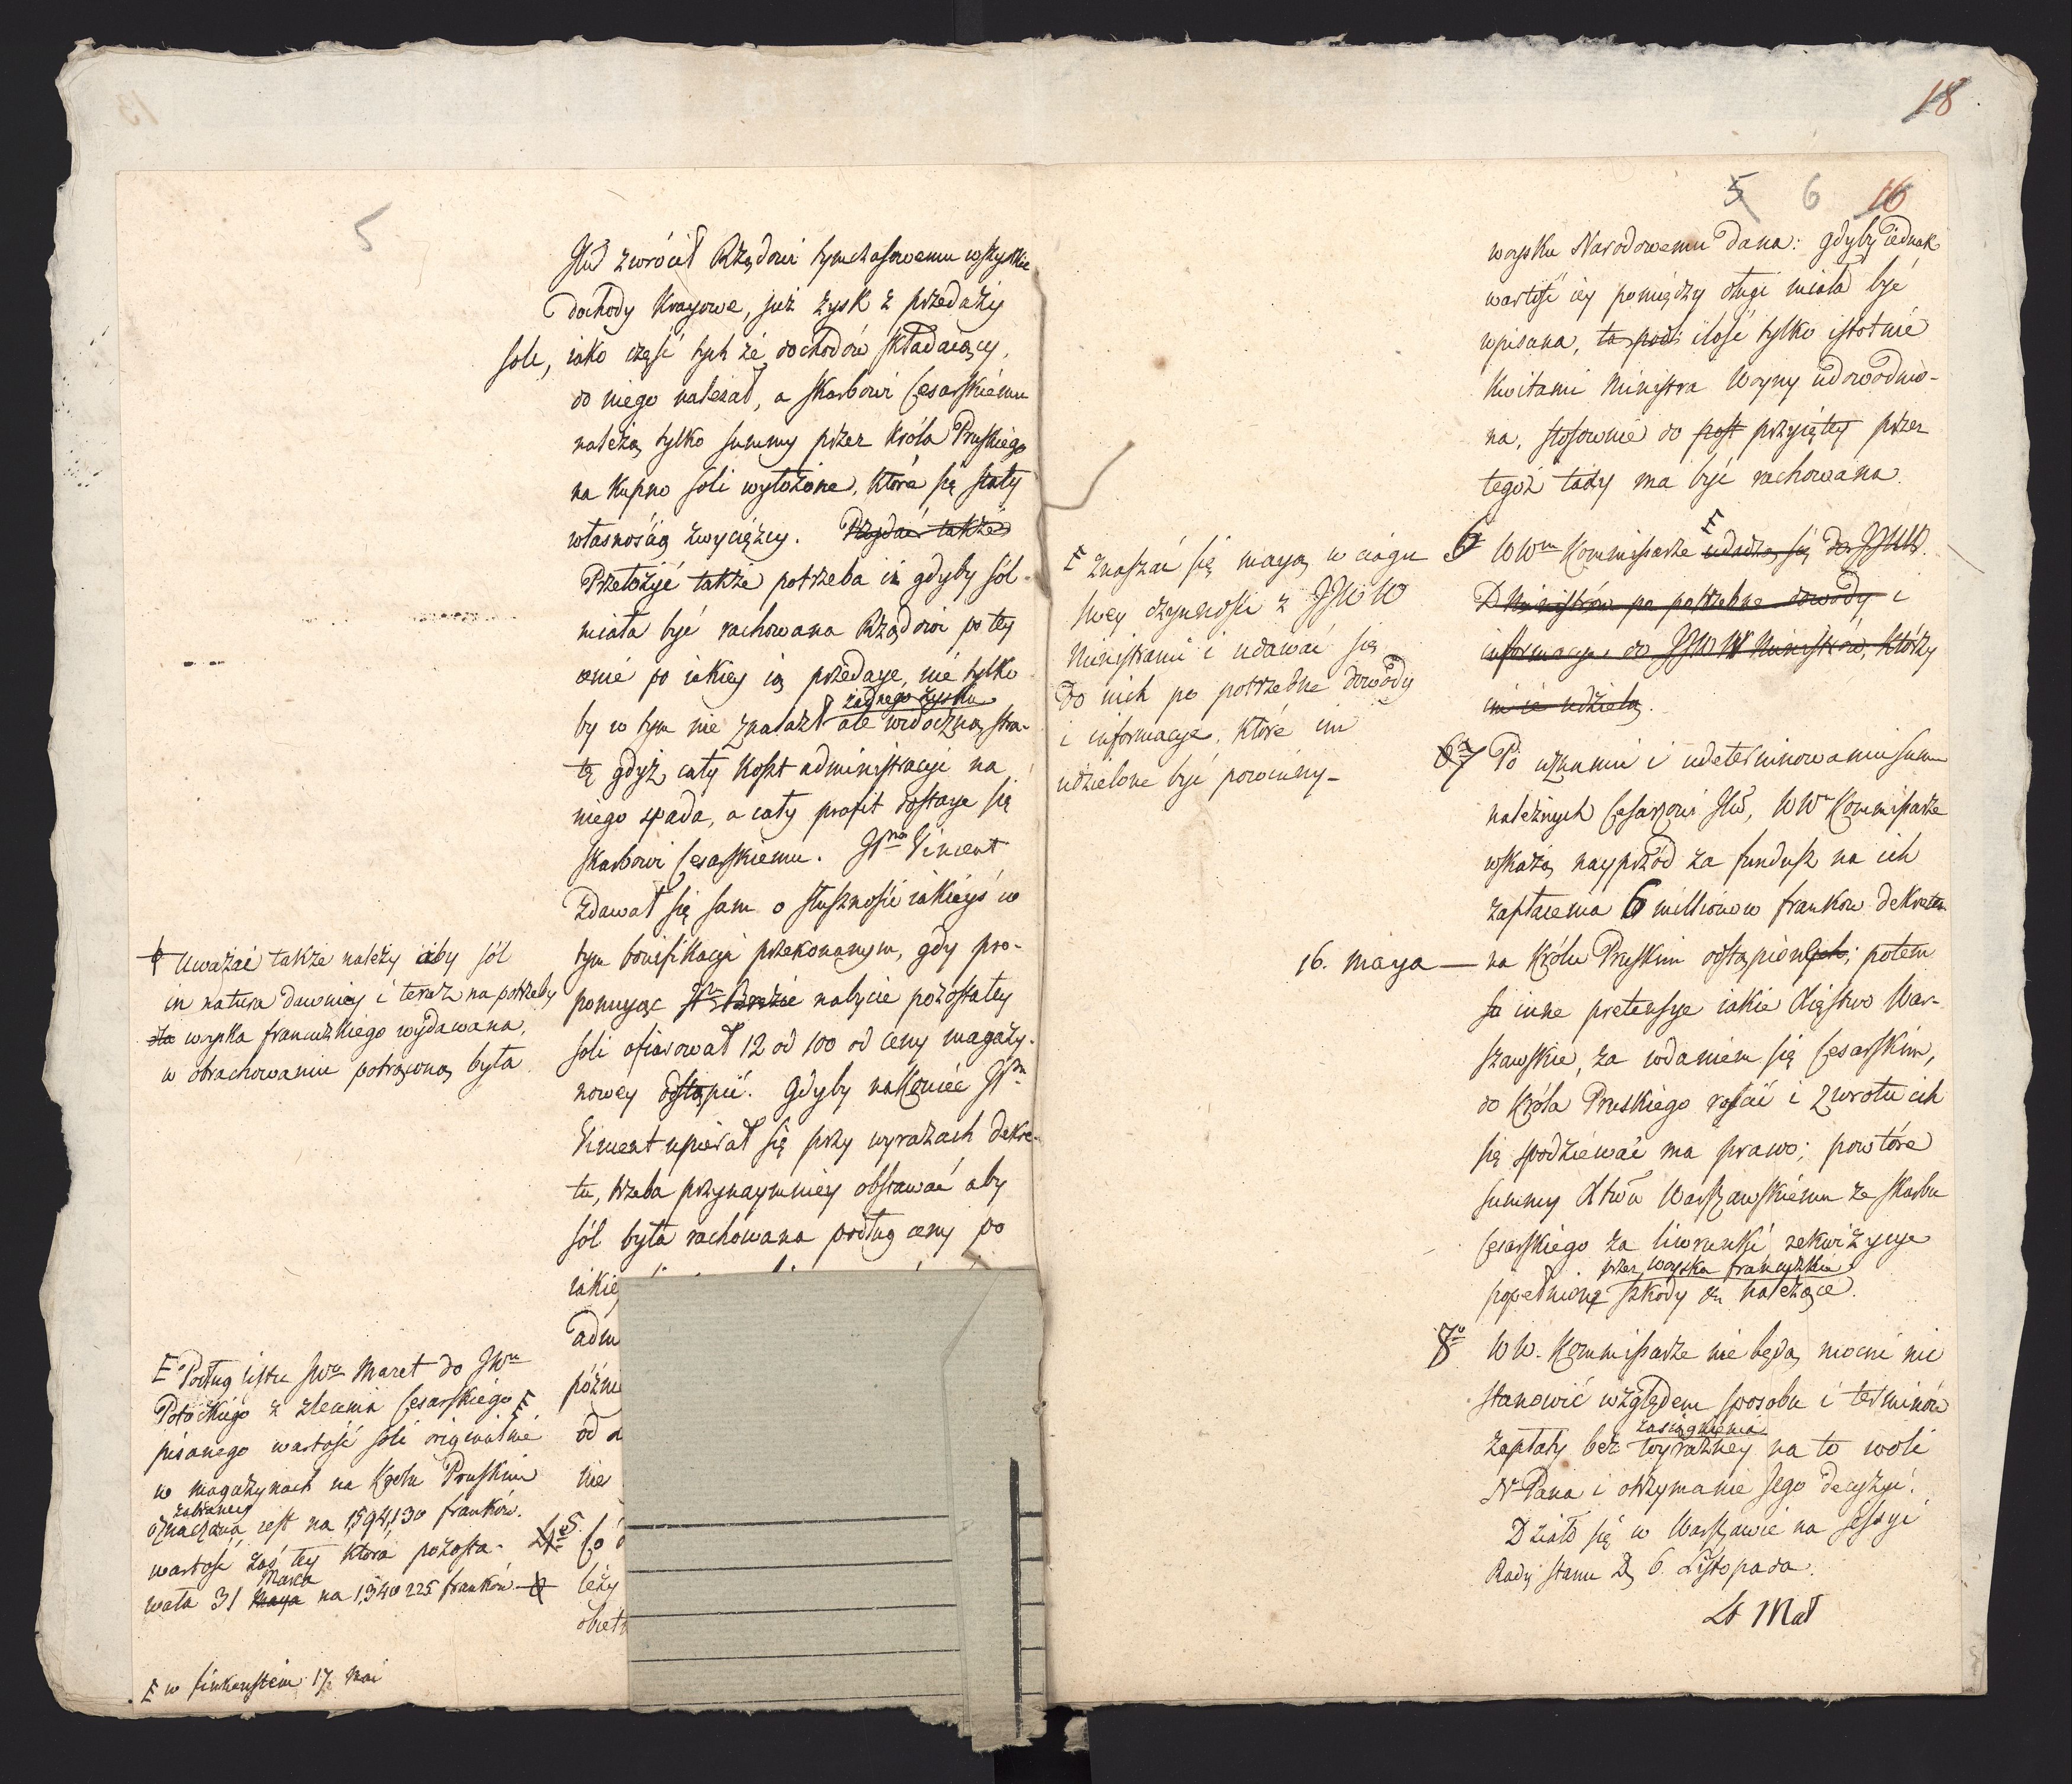 5
Jmć zwrócił Rządowi tymczasowemu wszystkie
dochody Krajowe, już zysk z przedaży
soli, iako część tych że dochodów składaiący,
do niego należał, a Skarbowi Cesarskiemu
należą tylko summy przez Króla Pruskiego
na kupno soli wyłożone, które się stały
własnością zwyciężcy. Przydać także
Przełożyć także potrzeba iż gdyby sól
miała być rachowana Rządowi po tey
cenie po iakiey ią przedaye, nie tylko
żadnego zysku
by w tym nie znalazł ale widoczną stra-
tę gdyż cały koszt administracyi na
niego spada, a cały profit dostaye się
Skarbowi Cesarskiemu. Vincent
zdawał się sam o słuszności iakieyś w
tym bonifikacyi przekonanym, gdy pro-
ponuyąc nabycie pozostałey
soli ofiarował 12 od 100 od ceny magazy-
nowey odstąpić. Gdyby nakoniec
Vincent upierał się przy wyrazach dekre-
tu, trzeba przynaymniey obstawać aby
sól była rachowana podług ceny po
iakiey
adm
późnie
od
nie
5. Co
leży
obietn
Uważać także należy aby sól
in natura dawniey i teraz na potrzeby
dla woyska francuzkiego wydawana,
w obrachowaniu potrąconą była
Podług listu JWo Maret do JWo
Potockiego z zlecenia Cesarskiego
pisanego wartość soli originalnie
w magazynach na Królu Pruskim
zabraney
oznaczona iest na 1,594,130 franków.
wartość zaś tey która pozosta-
Marca
wała 31 Maya na 1,540 225 franków
w Finkenstein 17 Mai
18
5 6 16
woysku Narodowemu dana: gdyby iednak
wartość iey pomiędzy długi miała być
wpisana, ta ilość tylko istotnie
kwitami Ministra Woyny udowodnio-
na, stosownie do przyiętey przez
tegoż taxy ma być rachowana.
6 WWni Kommissarze udadzą się do JJWW.
Ministrów po potrzebne dowody i
informacye do JJWW Ministrów, którzy
im ie udzielą.
znaszać się mayą w ciągu
swey czynności z JJWW
Ministrami i udawać się
do nich po potrzebne dowody
i informacye, które im
udzielone być powinny
7 Po uznaniu i udeterminowaniu summ
należnych Cesarzowi Jmć, WWni Kommissarze
wskażą nayprzód za fundusz na ich
zapłacenia 6 millionow frankow dekretem
16. maya — na Królu Pruskim odstąpionych; potem
inne pretensye iakie Xięstwo War-
szawskie, za wdaniem się Cesarskim,
do Króla Pruskiego rościć i zwrotu ich
się spodziewać ma prawo; powtóre
summy Xtwu Warszawskiemu ze skarbu
Cesarskiego za liwerunki, rekwizycye
przez woyska francuzkie
popełnione szkody należące.
8 WW. Kommissarze nie będą mocni nic
stanowić względem sposobu i terminów
zasiągnienia
zapłaty bez wyraźney na to woli
N. Pana i otrzymanie Jego decyzyi.
Działo się w Warszawie na Sessyi
Rady Stanu D. 6. Listopada.